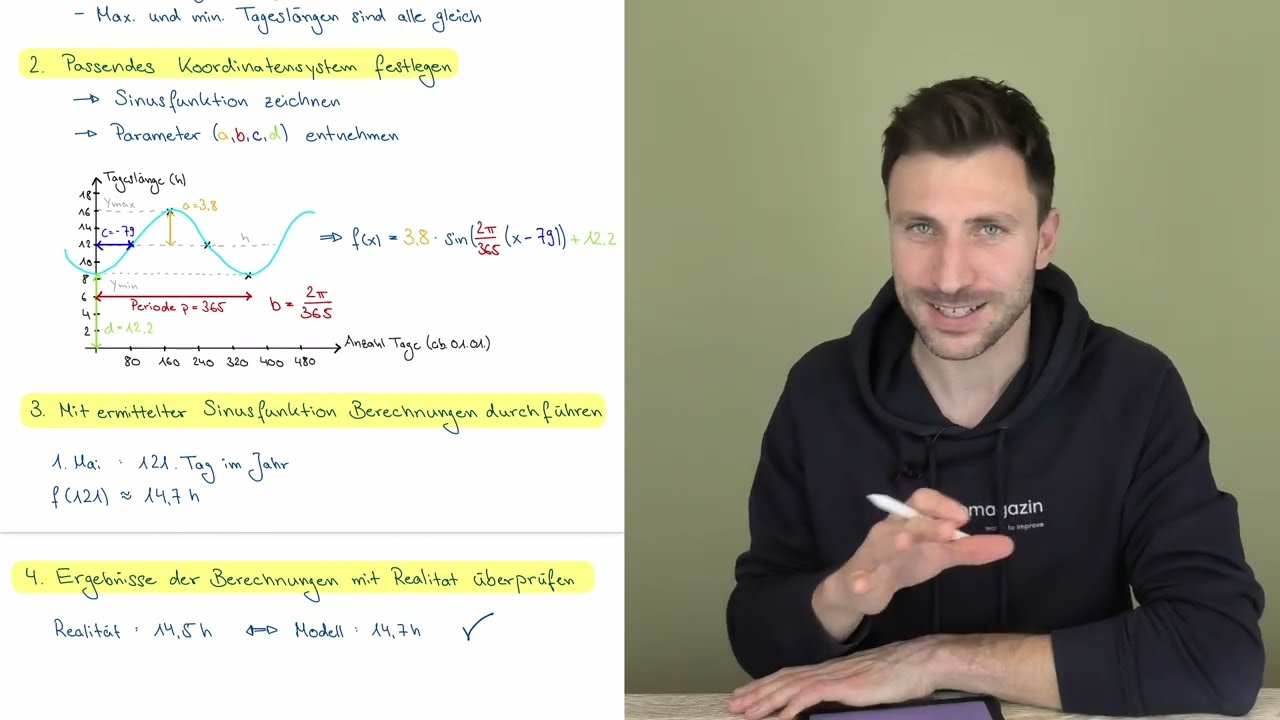 - Max. und min. Tageslängen sind alle gleich
2. Passendes Koordinatensystem festlegen
→ Sinusfunktion zeichnen
→ Parameter (a,b,c,d) entnehmen
Tageslänge (h)
18
16
14
12
10
8
6
4
2
ymax
a=3.8
c=-79
h
ymin
Periode p=365
d=12.2
b = 2π/365
80 160 240 320 400 480
Anzahl Tage (ab 01.01.)
⇒ f(x) = 3.8 · sin(2π/365 (x-79)) + 12.2
3. Mit ermittelter Sinusfunktion Berechnungen durchführen
1. Mai : 121. Tag im Jahr
f(121) ≈ 14,7 h
4. Ergebnisse der Berechnungen mit Realität überprüfen
Realität : 14,5 h ⇔ Modell : 14,7 h ✓
magazin
to improve